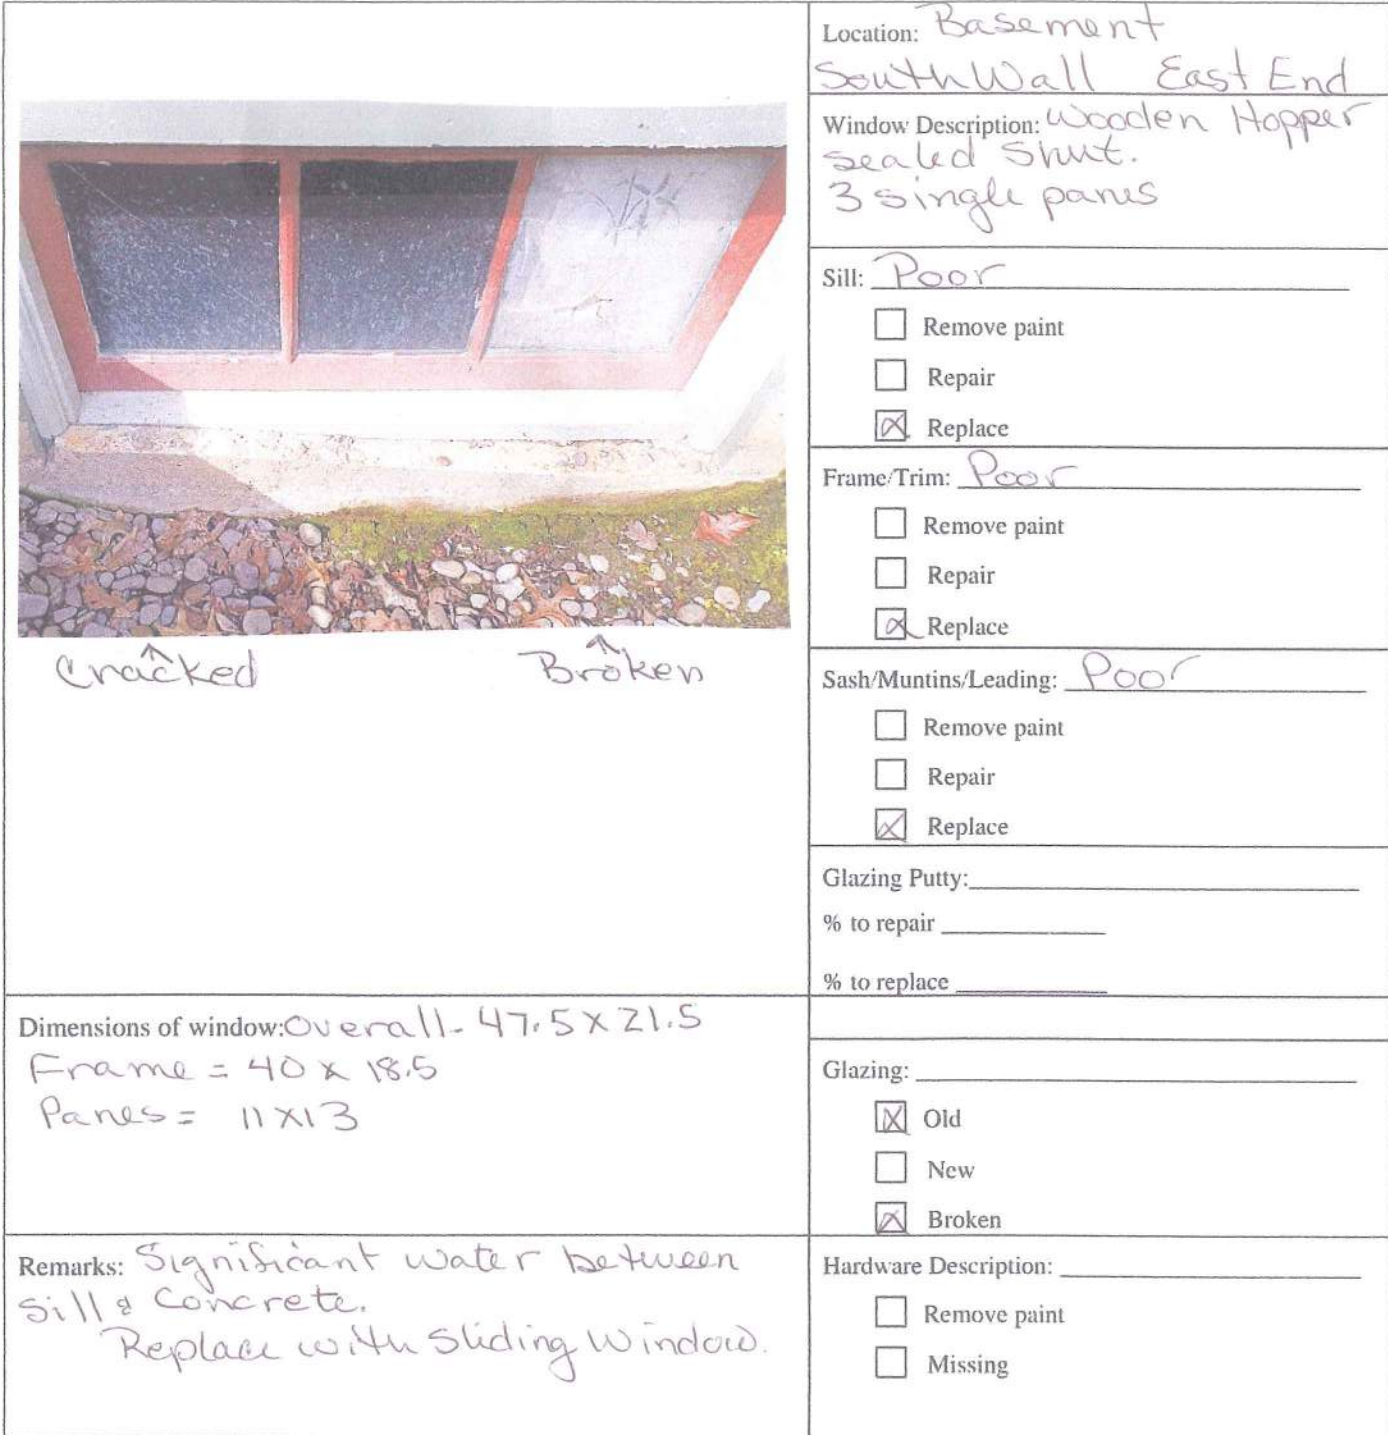 Location: Basement
South Wall East End
Window Description: Wooden Hopper
sealed Shut.
3 single panes
Sill: Poor
Remove paint
Repair
Replace
Frame/Trim: Poor
Remove paint
Repair
Replace
Cracked Broken
Sash/Muntins/Leading: Poor
Remove paint
Repair
Replace
Glazing Putty:
% to repair
% to replace
Dimensions of window: Overall - 47.5 x 21.5
Frame = 40 x 18.5
Panes = 11 x 13
Glazing:
Old
New
Broken
Remarks: Significant water between
Sill & Concrete.
Replace with Sliding Window.
Hardware Description:
Remove paint
Missing